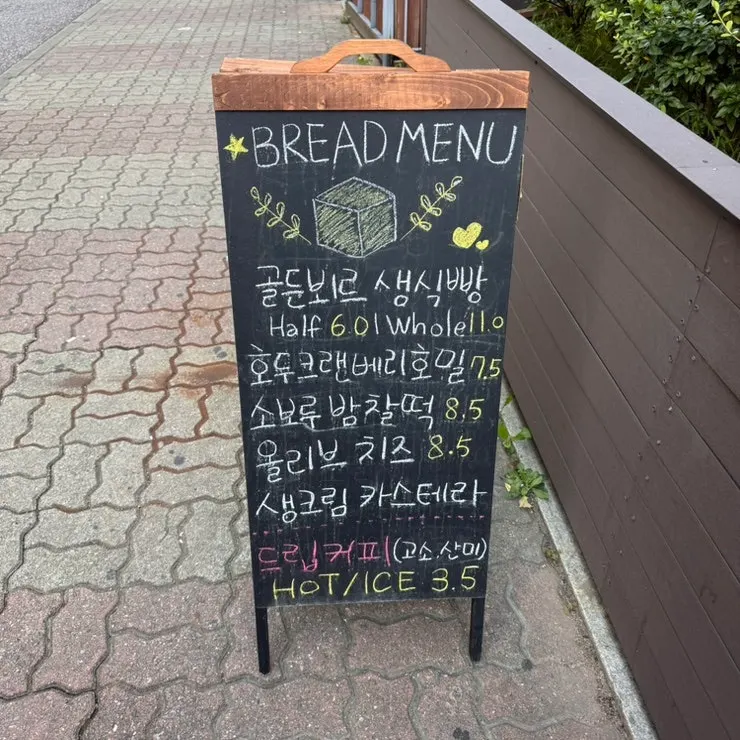 BREAD MENU
골든뵈르 생식빵
Half 6.0 | Whole 11.0
호두크랜베리호밀 7.5
소보루 밤찰떡 8.5
올리브 치즈 8.5
생크림 카스테라
드립커피 (고소.산미)
HOT/ICE 3.5